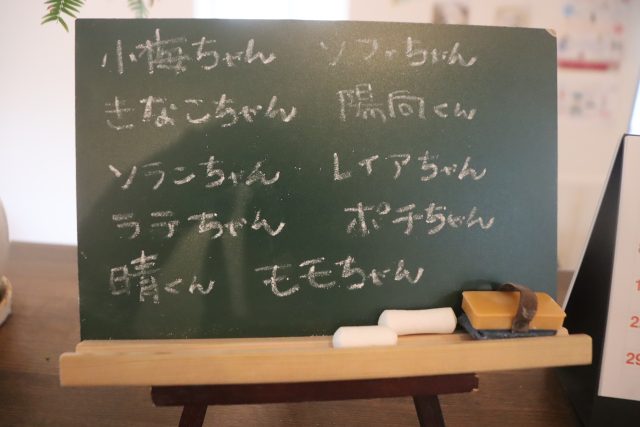 小梅ちゃん ソファちゃん
きなこちゃん 陽向くん
ソランちゃん レイアちゃん
ララちゃん ポチちゃん
晴くん モモちゃん
29